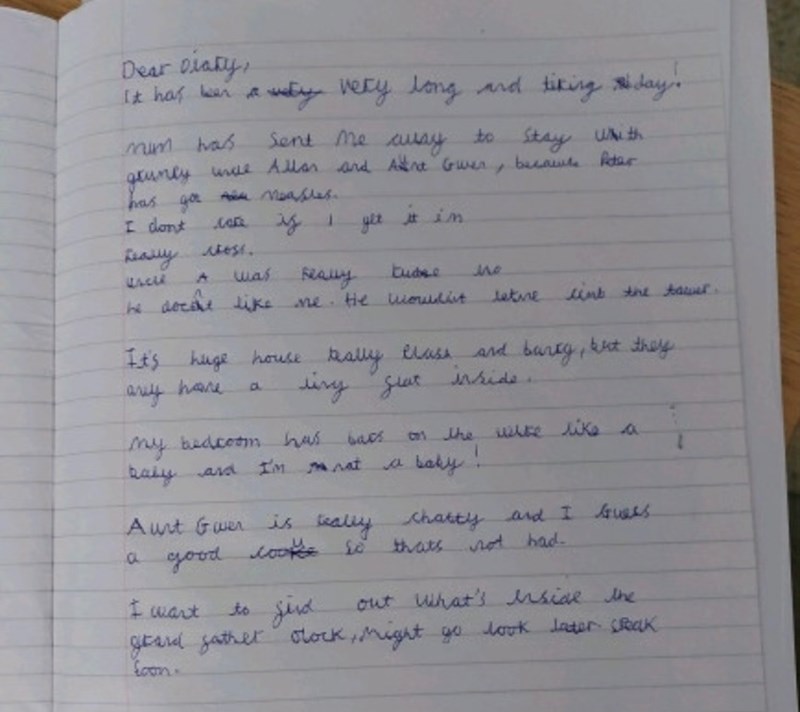 Dear Diary,
It has been a very very long and tiring day!
mum has sent me away to stay with
grumpy uncle Allan and Aunt Gwen, because Peter
has got measles.
I dont care if I get it im
really cross.
uncle A was really
he doesnt like me. He wouldnt letme the tower.
It's huge house really and , but they
only have a tiny flat inside.
My bedroom has bars on the like a
baby and I'm not a baby!
Aunt Gwen is really chatty and I Guess
a good so thats not bad.
I want to find out what's inside the
grand father clock, might go look later. speak
soon.